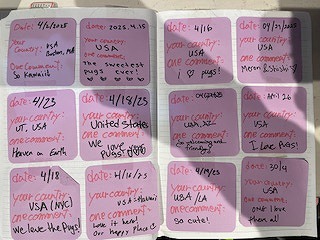 Date: 4/2/2025
Your
Country: USA
Boston, MA
One Comment:
So Kawaii!
date: 2025.4.15
your country:
USA
one comment:
The sweetest
pugs ever!
date: 4/23
your country:
UT, USA
one comment:
Heaven on Earth
date: 4/18/25
your country:
United States
one comment:
We love
Pugs!
date: 4/18
your country:
USA (NYC)
one comment:
We love the Pugs!
date: 4/16/25
your country:
USA - Hawaii
one comment:
Love it here!
Our happy place
date: 4/16
your country:
USA
one comment:
I pugs!
date: 04/21/2025
your country:
USA
one comment:
date:
your country:
one comment:
So welcoming and
friendly!
date: April 26
your country:
USA
one comment:
I Love Pugs!
date: 4/29/25
your country:
USA / LA
one comment:
So cute!
date: 30/4
your country:
USA
one comment:
love
them all